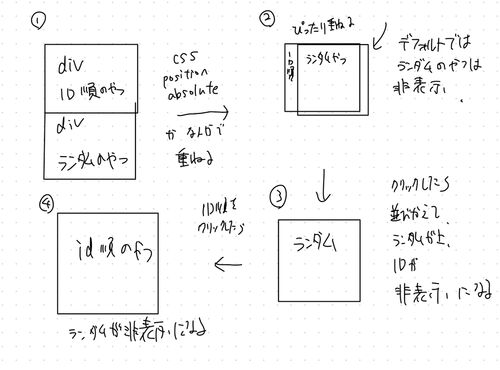 ①
div
ID順のやつ
div
ランダムのやつ
css
position
absolute
かなんかで
重ねる
②
ぴったり重ねる
ID順
ランダムやつ
デフォルトでは
ランダムのやつは
非表示、
③
ランダム
クリックしたら
並びかえて、
ランダムが上、
IDが
非表示になる
④
ID順を
クリックしたら
id順のやつ
ランダムが非表示になる